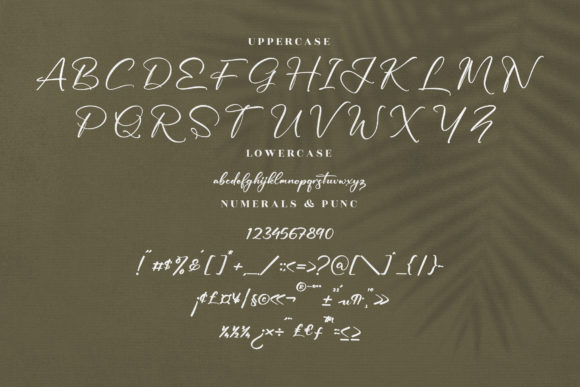 UPPERCASE
ABCDEFGHIJKLMN
OPQRSTUVWXYZ
LOWERCASE
abcdefghijklmnopqrstuvwxyz
NUMERALS & PUNC
1234567890
!"#$%&'[]*+_/:;<=>?@[\]^_{|}~
¡¢£¤¥/§©«¬®¯°±²³´µ¶·¸¹»
¼½¾¿×÷